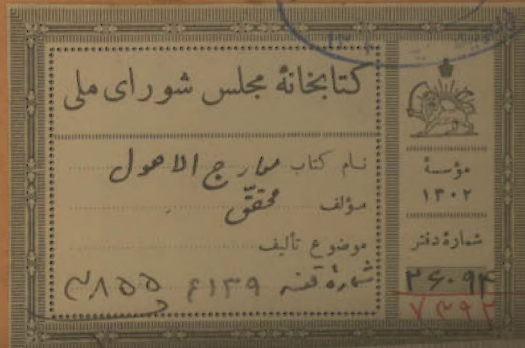 کتابخانهٔ مجلس شورای ملی
نام کتاب معارج الاصول
مؤلف محقق
موضوع تألیف
شمارهٔ قفسه ۶۱۳۹
مؤسسهٔ
۱۳۰۲
شمارهٔ دفتر
۲۶۰۹۴